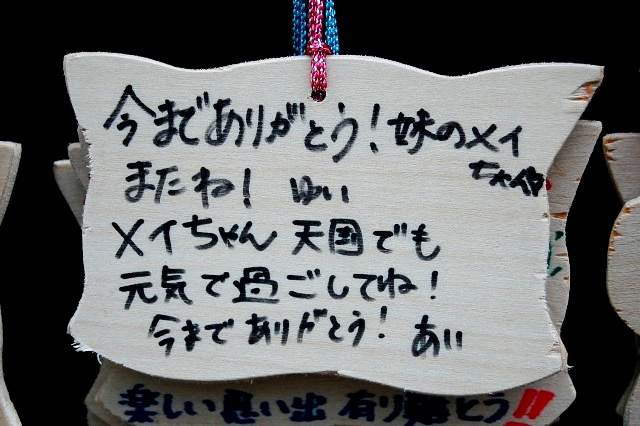 今までありがとう!妹のメイ
ちゃん
またね! ゆい
メイちゃん 天国でも
元気で過ごしてね!
今までありがとう! あい
楽しい思い出 有り難とう!!